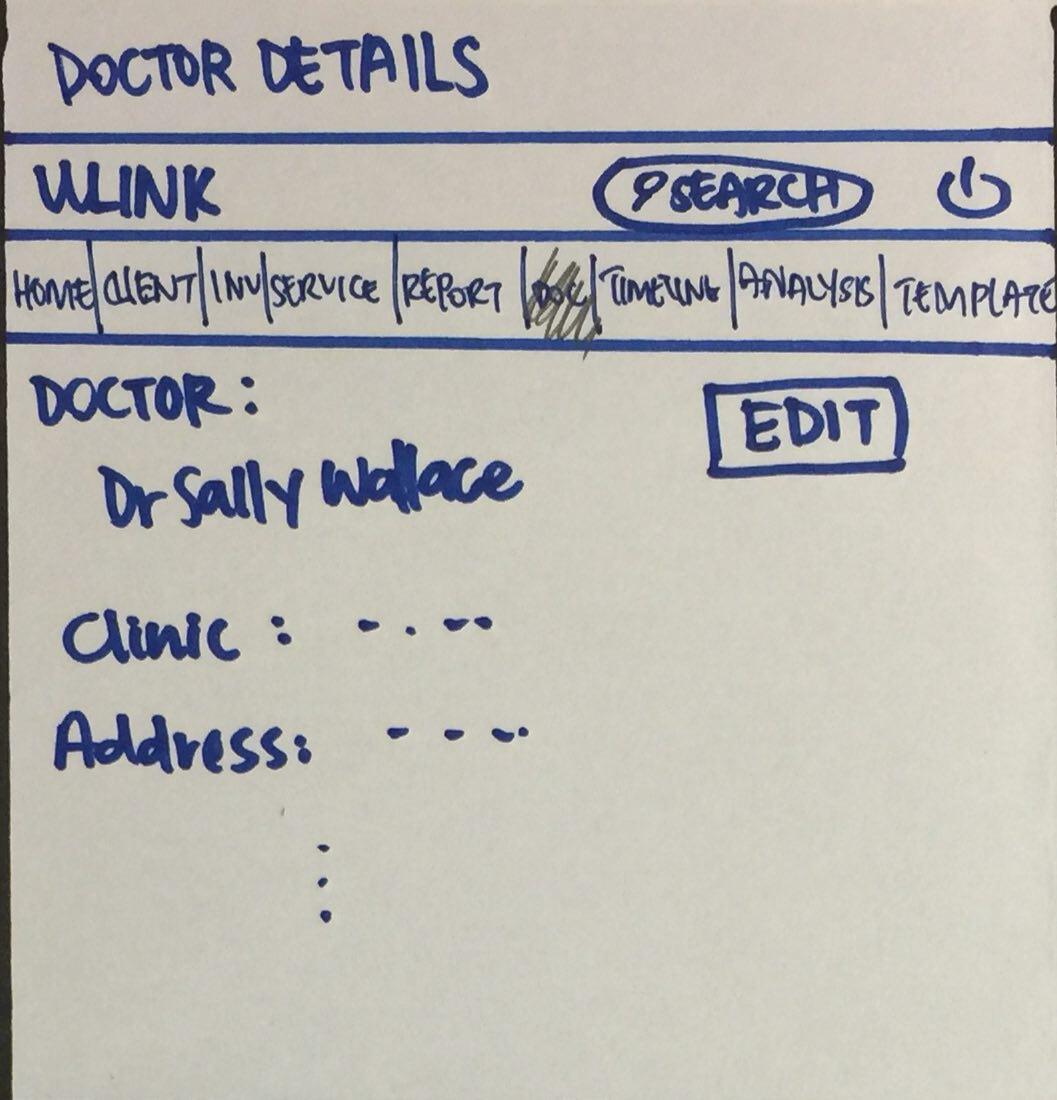 DOCTOR DETAILS
ULINK SEARCH
HOME CLIENT INV SERVICE REPORT DOC TIMELINE ANALYSIS TEMPLATE
DOCTOR: EDIT
Dr Sally Wallace
Clinic : - . - -
Address: - - - .